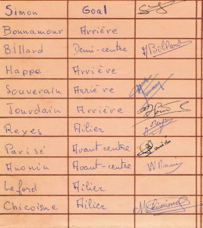 Simon Goal
Bonnamour Arrière
Billard Demi-centre
Happe Arrière
Souverain Arrière
Jourdain Arrière
Reyes Ailier
Parisé Avant centre
Anonin Avant-centre
Leford Ailier
Chicoisne Ailier